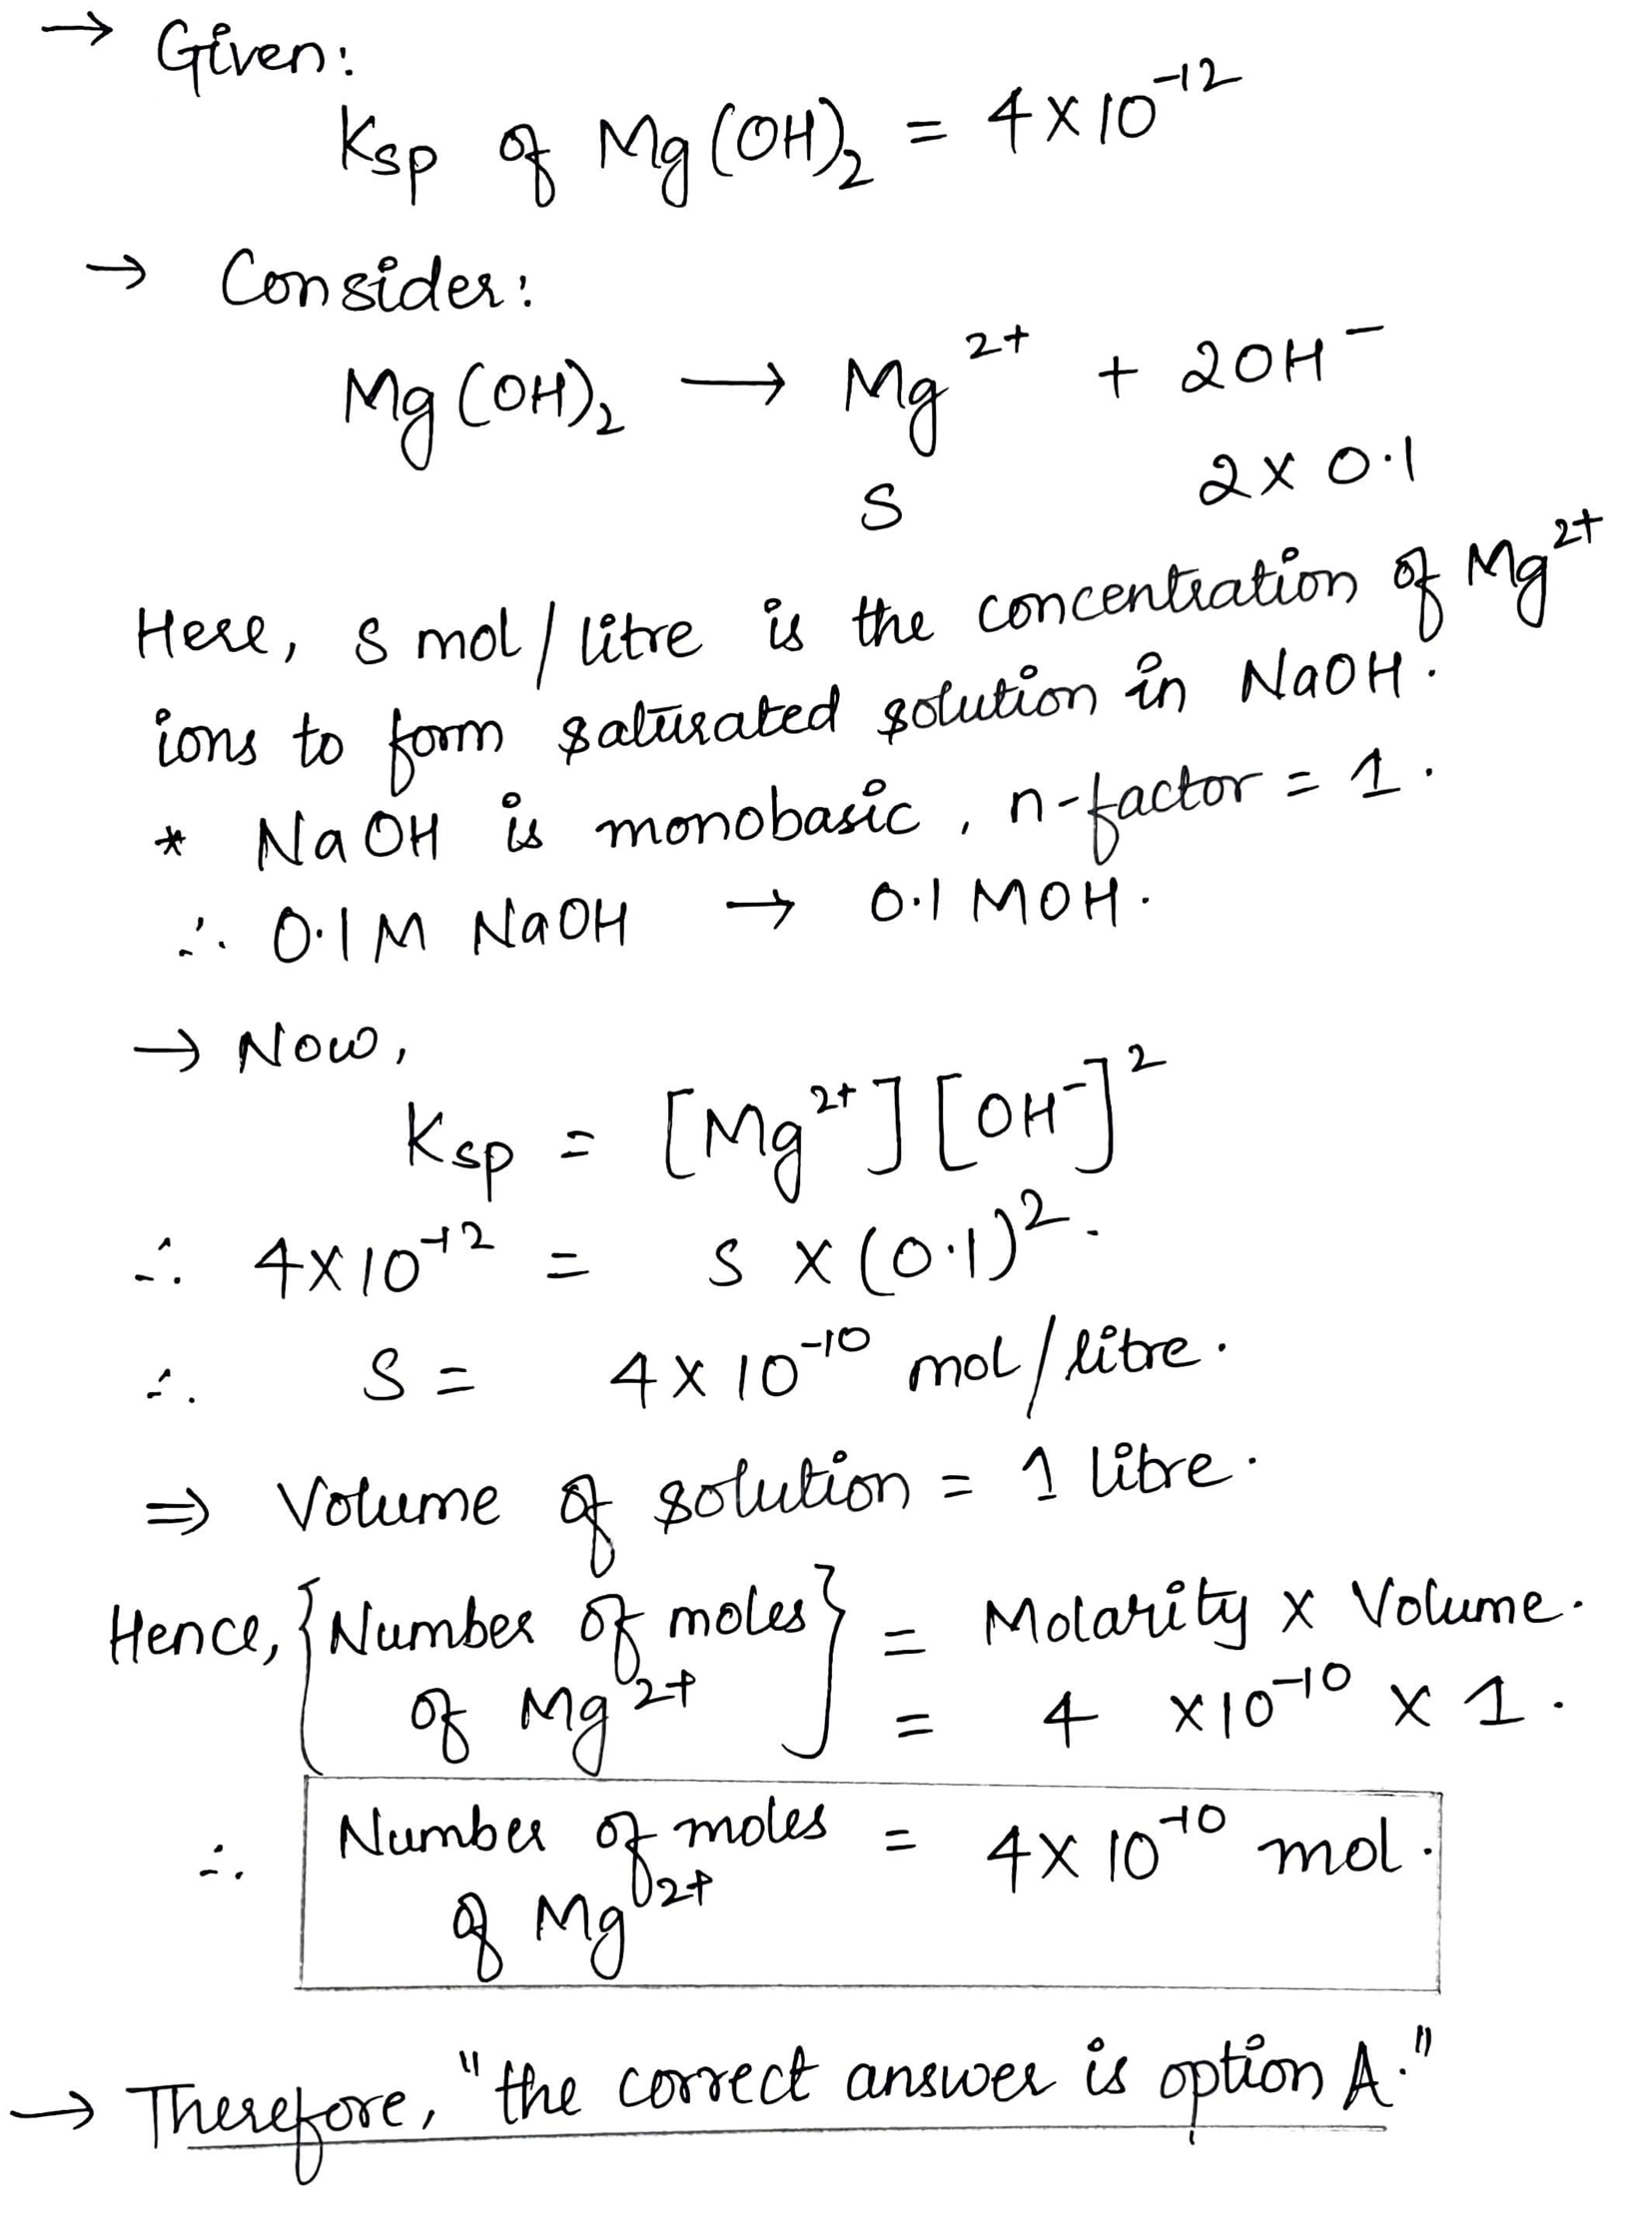 → Given:
Ksp of Mg(OH)₂ = 4×10⁻¹²
→ Consider:
Mg(OH)₂ → Mg²⁺ + 2OH⁻
S 2×0.1
Here, s mol/litre is the concentration of Mg²⁺
ions to form saturated solution in NaOH.
* NaOH is monobasic, n-factor = 1.
∴ 0.1M NaOH → 0.1 MOH.
→ Now,
Ksp = [Mg²⁺][OH⁻]²
∴ 4×10⁻¹² = S × (0.1)².
∴ S = 4×10⁻¹⁰ mol/litre.
⇒ Volume of solution = 1 litre.
Hence, {Number of moles} = Molarity × Volume.
of Mg²⁺ = 4 ×10⁻¹⁰ × 1.
∴ Number of moles = 4×10⁻¹⁰ mol.
of Mg²⁺
→ Therefore, "the correct answer is option A."